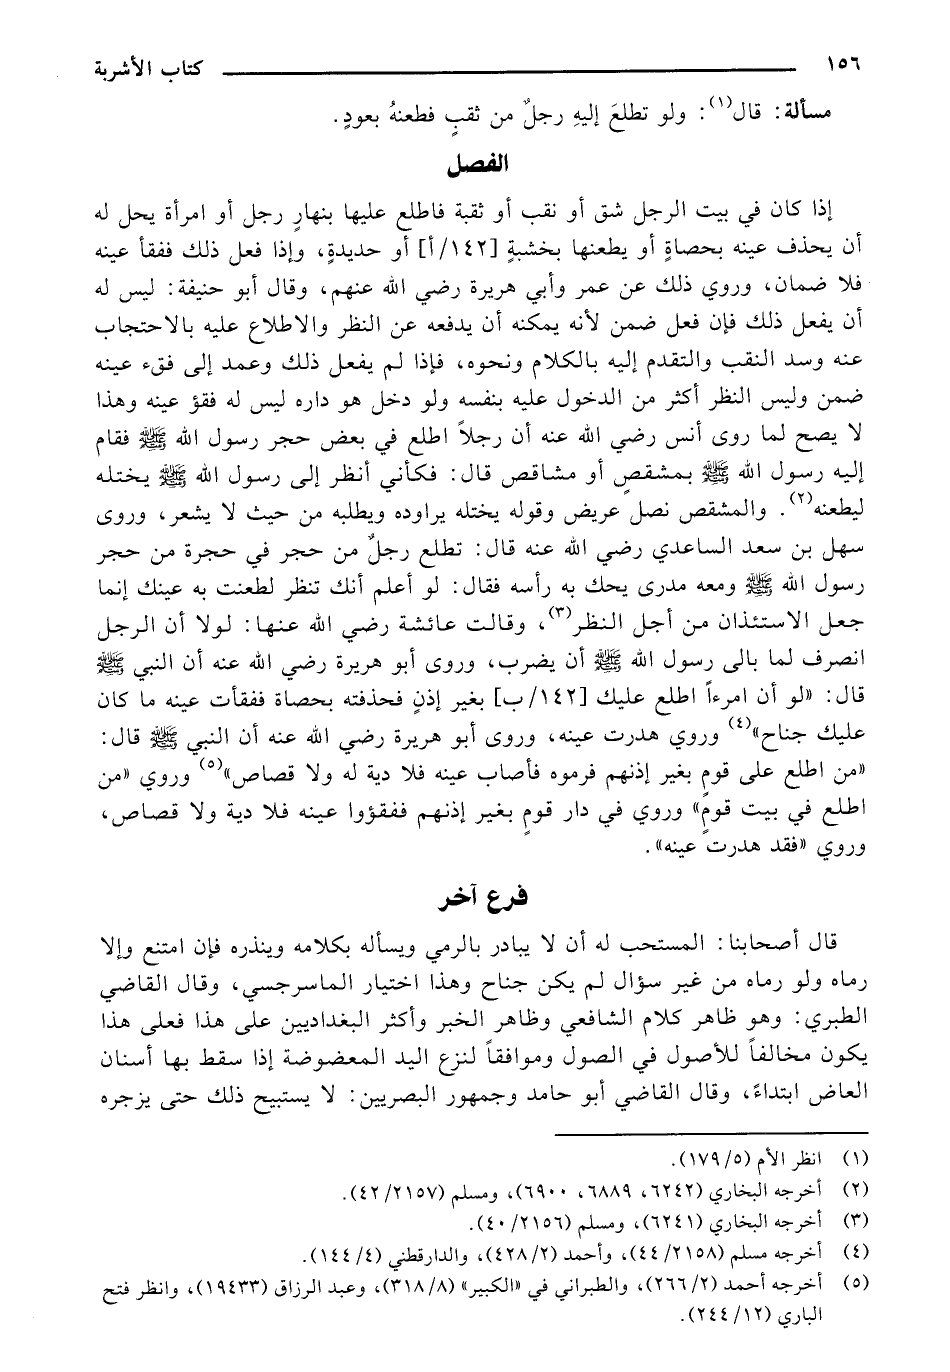 ١٥٦ كتاب الأشربة
مسألة: قال(١): ولو تطلعَ إليهِ رجلٌ من ثقبٍ فطعنهُ بعودٍ.
الفصل
إذا كان في بيت الرجل شق أو نقب أو ثقبة فاطلع عليها بنهارٍ رجل أو امرأة يحل له
أن يحذف عينه بحصاةٍ أو يطعنها بخشبةٍ [١٤٢/أ] أو حديدةٍ، وإذا فعل ذلك ففقأ عينه
فلا ضمان، وروي ذلك عن عمر وأبي هريرة رضي الله عنهم، وقال أبو حنيفة: ليس له
أن يفعل ذلك فإن فعل ضمن لأنه يمكنه أن يدفعه عن النظر والاطلاع عليه بالاحتجاب
عنه وسد النقب والتقدم إليه بالكلام ونحوه، فإذا لم يفعل ذلك وعمد إلى فقء عينه
ضمن وليس النظر أكثر من الدخول عليه بنفسه ولو دخل هو داره ليس له فقؤ عينه وهذا
لا يصح لما روى أنس رضي الله عنه أن رجلاً اطلع في بعض حجر رسول الله ﷺ فقام
إليه رسول الله ﷺ بمشقصٍ أو مشاقص قال: فكأني أنظر إلى رسول الله ﷺ يختله
ليطعنه(٢). والمشقص نصل عريض وقوله يختله يراوده ويطلبه من حيث لا يشعر، وروى
سهل بن سعد الساعدي رضي الله عنه قال: تطلع رجلٌ من حجر في حجرة من حجر
رسول الله ﷺ ومعه مدرى يحك به رأسه فقال: لو أعلم أنك تنظر لطعنت به عينك إنما
جعل الاستئذان من أجل النظر(٣)، وقالت عائشة رضي الله عنها: لولا أن الرجل
انصرف لما بالى رسول الله ﷺ أن يضرب، وروى أبو هريرة رضي الله عنه أن النبي ﷺ
قال: «لو أن امرءاً اطلع عليك [١٤٢/ب] بغير إذنٍ فحذفته بحصاة ففقأت عينه ما كان
عليك جناح»(٤) وروي هدرت عينه، وروى أبو هريرة رضي الله عنه أن النبي ﷺ قال:
«من اطلع على قومٍ بغير إذنهم فرموه فأصاب عينه فلا دية له ولا قصاص»(٥) وروي «من
اطلع في بيت قومٍ» وروي في دار قومٍ بغير إذنهم ففقؤوا عينه فلا دية ولا قصاص،
وروي «فقد هدرت عينه».
فرع آخر
قال أصحابنا: المستحب له أن لا يبادر بالرمي ويسأله بكلامه وينذره فإن امتنع وإلا
رماه ولو رماه من غير سؤال لم يكن جناح وهذا اختيار الماسرجسي، وقال القاضي
الطبري: وهو ظاهر كلام الشافعي وظاهر الخبر وأكثر البغداديين على هذا فعلى هذا
يكون مخالفاً للأصول في الصول وموافقاً لنزع اليد المعضوضة إذا سقط بها أسنان
العاض ابتداءً، وقال القاضي أبو حامد وجمهور البصريين: لا يستبيح ذلك حتى يزجره
(١) انظر الأم (٥/ ١٧٩).
(٢) أخرجه البخاري (٦٢٤٢، ٦٨٨٩، ٦٩٠٠)، ومسلم (٤٢/٢١٥٧).
(٣) أخرجه البخاري (٦٢٤١)، ومسلم (٤٠/٢١٥٦).
(٤) أخرجه مسلم (٤٤/٢١٥٨)، وأحمد (٤٢٨/٢)، والدارقطني (١٤٤/٤).
(٥) أخرجه أحمد (٢٦٦/٢)، والطبراني في «الكبير» (٣١٨/٨)، وعبد الرزاق (١٩٤٣٣)، وانظر فتح
الباري (٢٤٤/١٢).